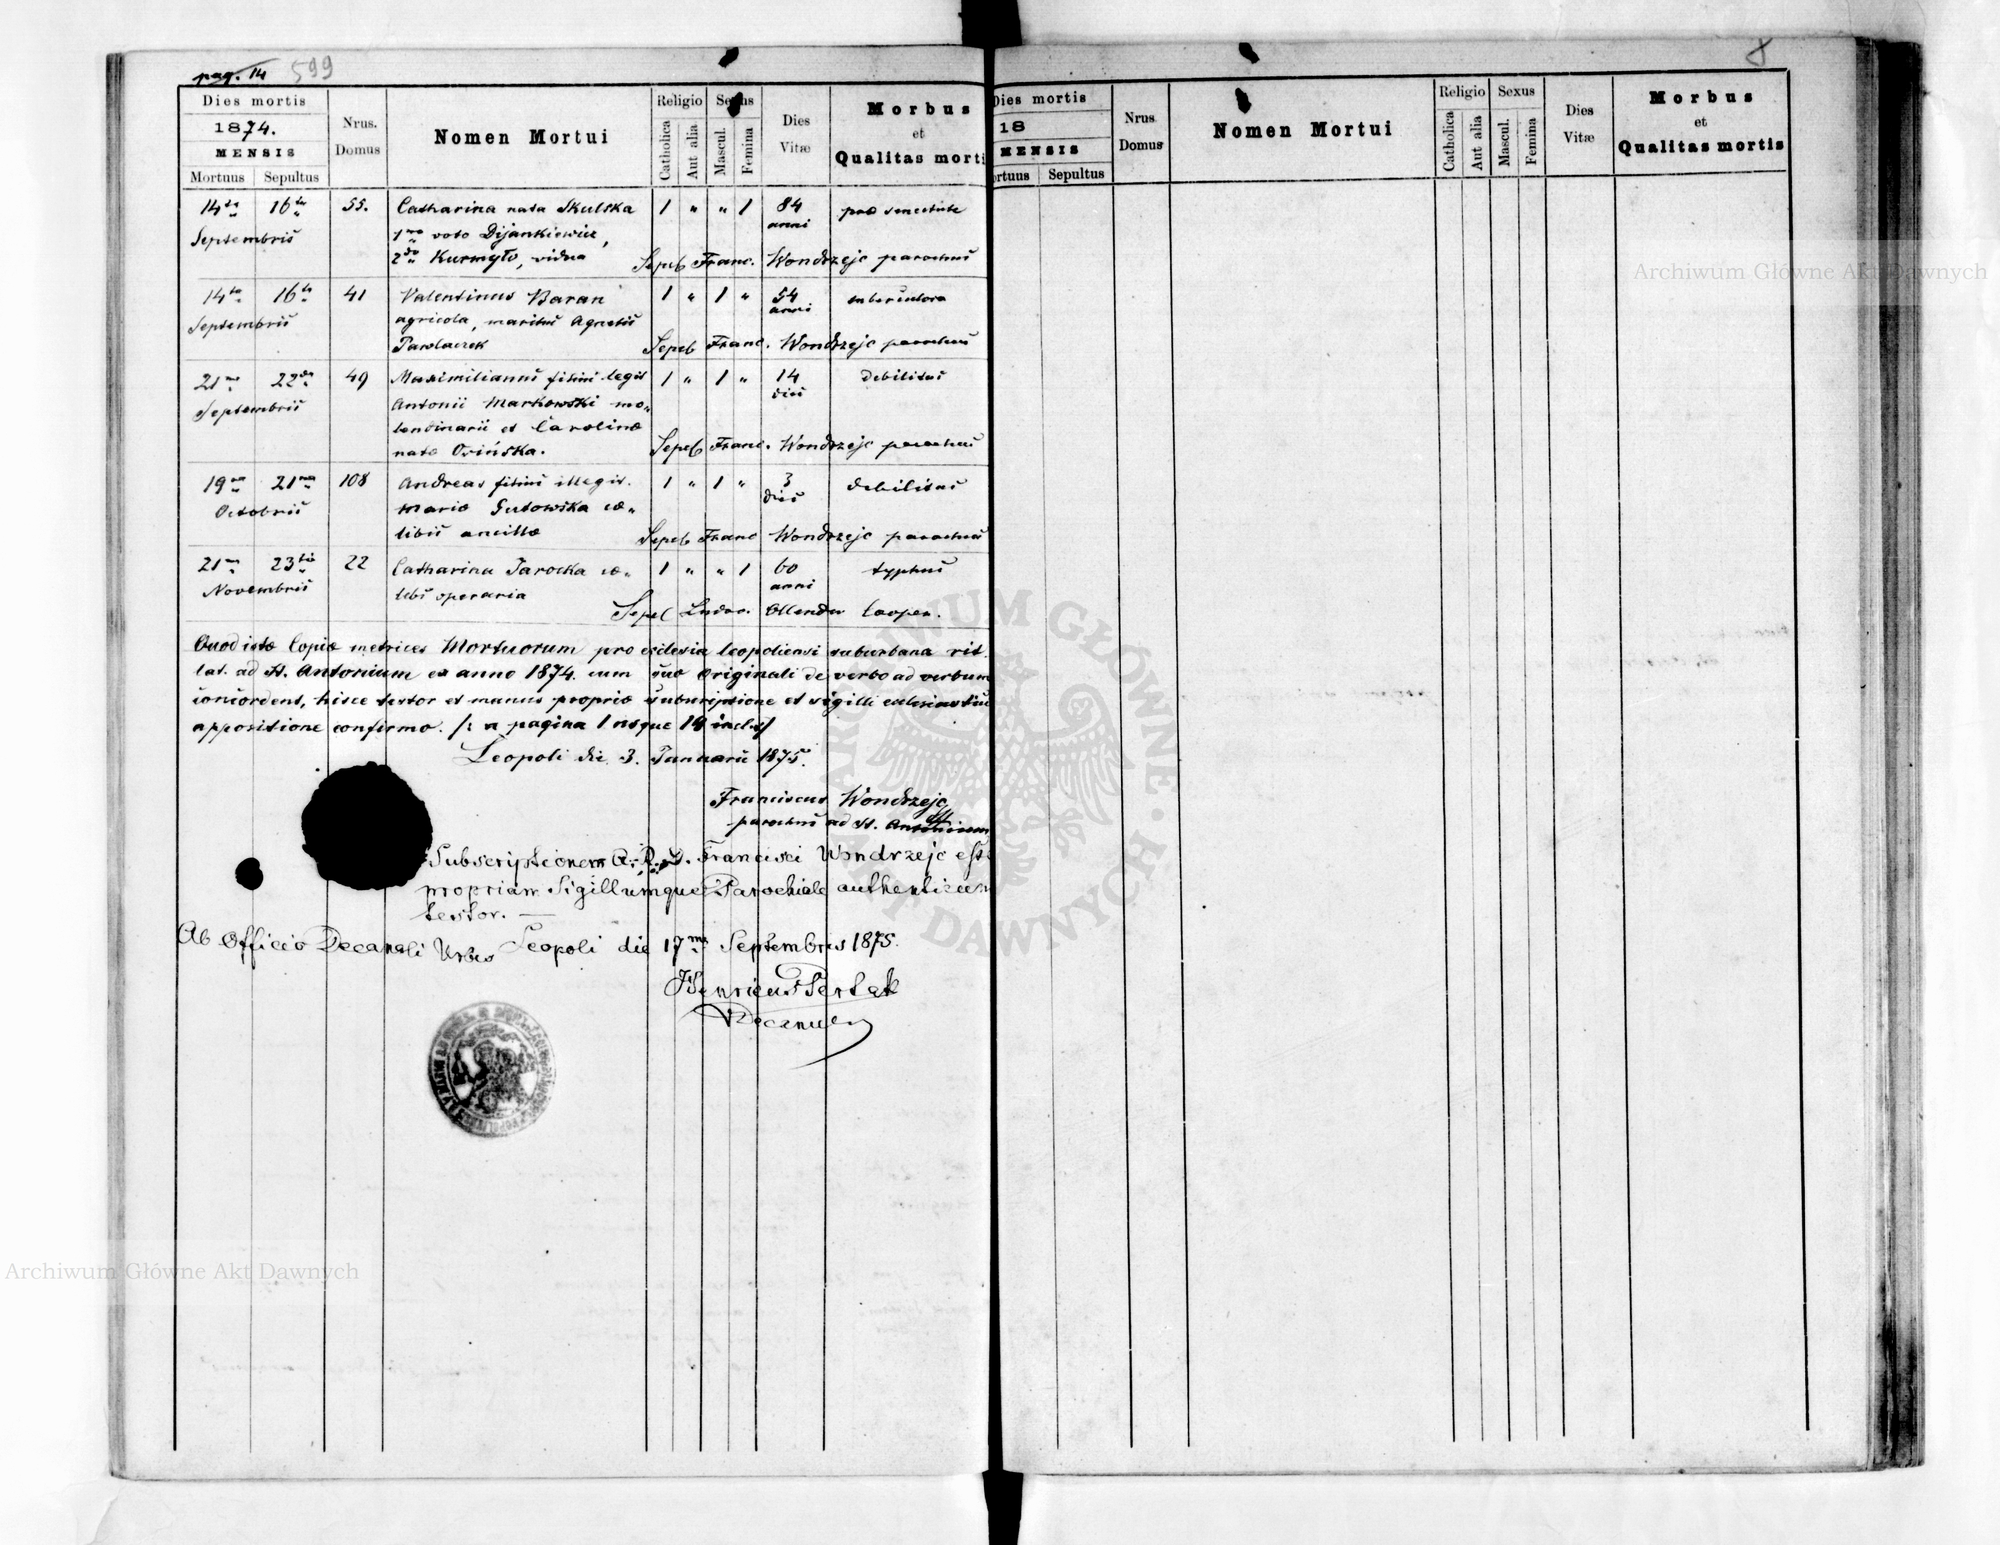 pag. 14 599
Dies mortis
1874.
MENSIS
Mortuus Sepultus
Nrus.
Domus
Nomen Mortui
Religio
Catholica
Aut alia
Sexus
Mascul.
Femina
Dies
Vitæ
Morbus
et
Qualitas morti
14ta 16ta 55. Catharina nata Skulska 1 " " 1 84 præ senectute
Septembris 1mo voto Dijankiewicz, anni
2do Kurmyło, vidua Sepel Franc. Wondrzejc parochus
14ta 16ta 41 Valentinus Baran 1 " 1 " 54 tuberculosa
Septembris agricola, maritus Agnetis anni
Pawlaczek Sepel Franc. Wondrzejc parochus
21ma 22da 49 Maximilianus filius legit 1 " 1 " 14 debilitas
Septembris Antonii Markowski mo„ dies
lendinarii et Carolinæ
nata Osińska. Sepel Franc. Wondrzejc parochus
19na 21ma 108 Andreas filius illegit. 1 " 1 " 3 debilitas
Octobris Mariæ Gutowska cæ„ dies
libis ancillæ Sepel Franc Wondrzejc parochus
21ma 23tia 22 Catharina Tarocka cæ„ 1 " " 1 60 typhus
Novembris lebs operaria anni
Sepel Ludov. Ollender Cooper.
Quod istæ Copiæ metrices Mortuorum pro ecclesia leopoliensi suburbana rit.
lat. ad St. Antonium ex anno 1874. cum suo originali de verbo ad verbum
concordent, hisce testor et manus propriæ subscriptione et sigilli ecclesiastici
appositione confirmo. /: a pagina 1 usque 14 incl:/
Leopoli die 3. Januarii 1875.
Franciscus Wondrzejc
parochus ad St. Antonium
Subscriptionem A. R. D. Francisci Wondrzejc esse
propriam Sigillumque Parochiale authenticum
testor. —
Ab Officio Decanali Urbis Leopoli die 17ma Septembris 1875.
Henricus
Decanus
Dies mortis
18
MENSIS
ortuus Sepultus
Nrus.
Domus
Nomen Mortui
Religio
Catholica
Aut alia
Sexus
Mascul.
Femina
Dies
Vitæ
Morbus
et
Qualitas mortis
Archiwum Główne Akt Dawnych
Archiwum Główne Akt Dawnych
ARCHIWUM GŁÓWNE AKT DAWNYCH